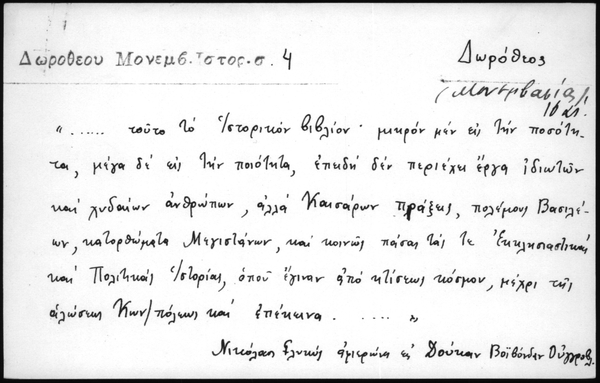 Δωροθεου Μονεμβ. Ἱστορ. σ. 4
Δωρόθεος
Μονεμβασίας
"...... τοῦτο τὸ Ἱστορικὸν βιβλίον· μικρὸν μὲν εἰς τὴν ποσότη-
τα, μέγα δὲ εἰς τὴν ποιότητα, ἐπειδὴ δὲν περιέχει ἔργα ἰδιωτῶν
καὶ χυδαίων ἀνθρώπων, ἀλλὰ Καισάρων πράξεις, πολέμους Βασιλέ-
ων, κατορθώματα Μεγιστάνων, καὶ κοινῶς πάσας τάς τε Ἐκκλησιαστικὰς
καὶ Πολιτικὰς Ἱστορίας, ὁποῦ ἔγιναν ἀπὸ κτίσεως κόσμου, μέχρι τῆς
ἁλώσεως Κων/πόλεως καὶ ἐπέκεινα. ... "
Νικόλαος Γλυκύς ἀφιερώνει εἰς Δούκαν Βοϊβόνδαν